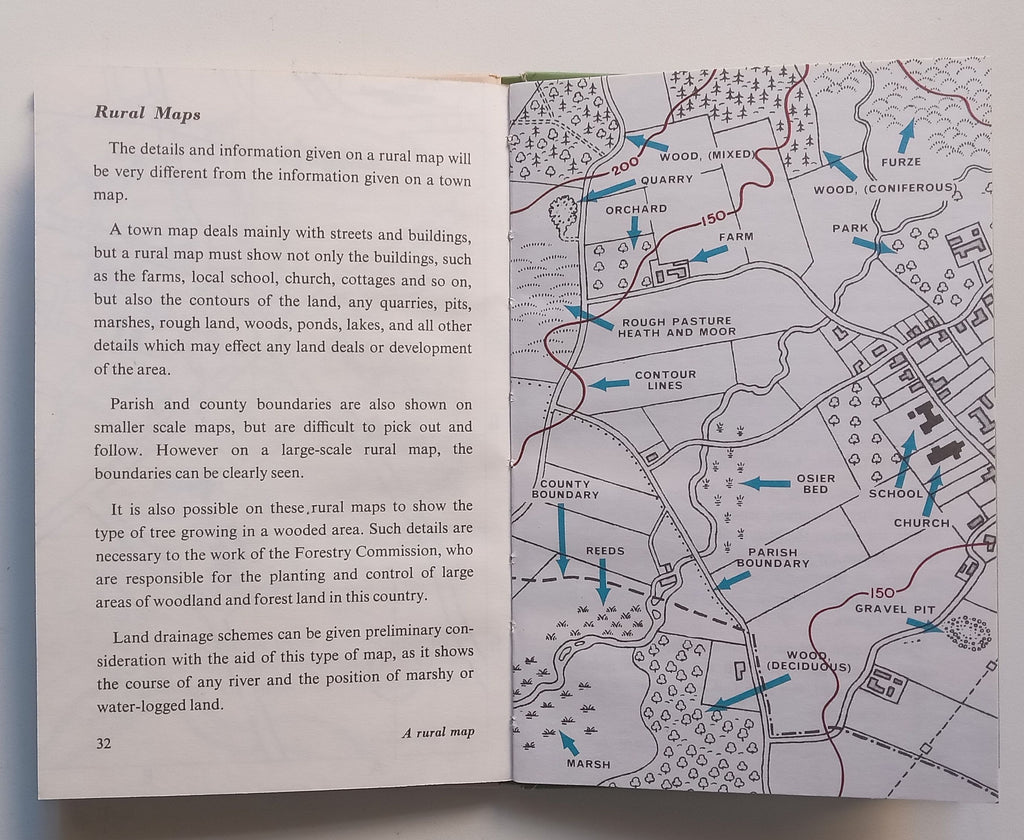 Rural Maps
The details and information given on a rural map will
be very different from the information given on a town
map.
A town map deals mainly with streets and buildings,
but a rural map must show not only the buildings, such
as the farms, local school, church, cottages and so on,
but also the contours of the land, any quarries, pits,
marshes, rough land, woods, ponds, lakes, and all other
details which may effect any land deals or development
of the area.
Parish and county boundaries are also shown on
smaller scale maps, but are difficult to pick out and
follow. However on a large-scale rural map, the
boundaries can be clearly seen.
It is also possible on these rural maps to show the
type of tree growing in a wooded area. Such details are
necessary to the work of the Forestry Commission, who
are responsible for the planting and control of large
areas of woodland and forest land in this country.
Land drainage schemes can be given preliminary con-
sideration with the aid of this type of map, as it shows
the course of any river and the position of marshy or
water-logged land.
32
A rural map
200
WOOD, (MIXED)
FURZE
QUARRY
WOOD, (CONIFEROUS)
ORCHARD
150
PARK
FARM
ROUGH PASTURE
HEATH AND MOOR
CONTOUR
LINES
COUNTY
BOUNDARY
OSIER
BED
SCHOOL
CHURCH
REEDS
PARISH
BOUNDARY
150
GRAVEL PIT
WOOD,
(DECIDUOUS)
MARSH